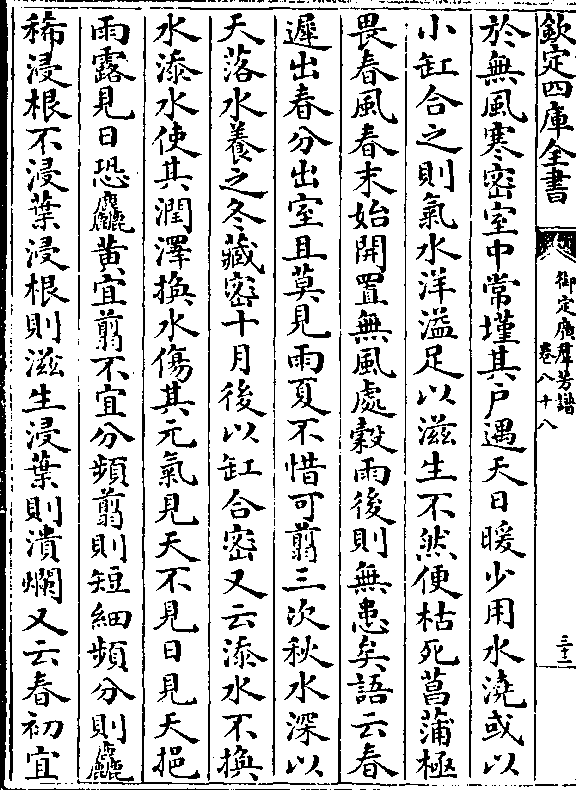 欽定四庫全書
御定廣群芳譜
卷八十八
三十二
於無風寒密室中常墐其户遇天日暖少用水澆或以
小缸合之則氣水洋溢足以滋生不然便枯死菖蒲極
畏春風春末始開置無風處穀雨後則無患矣語云春
遲出春分出室且莫見雨夏不惜可翦三次秋水深以
天落水養之冬藏密十月後以缸合密又云添水不換
水添水使其潤澤換水傷其元氣見天不見日見天挹
雨露見日恐麤黄宜翦不宜分頻翦則短細頻分則麤
稀浸根不浸葉浸根則滋生浸葉則潰爛又云春初宜